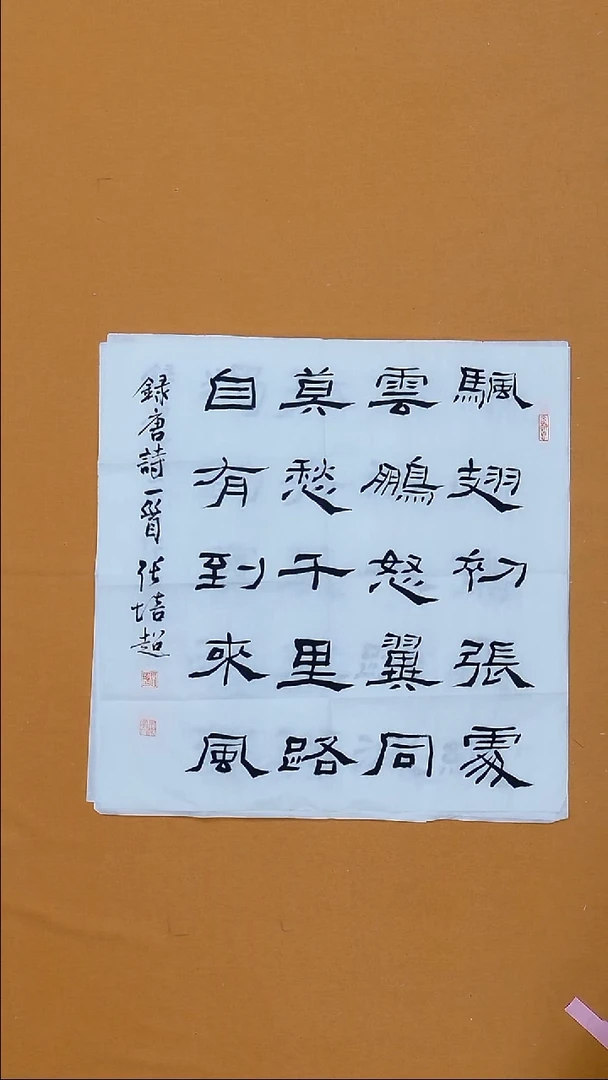 颿翅初張處
雲鵬怒翼同
莫愁千里路
自有到來風
録唐詩一首 張培超